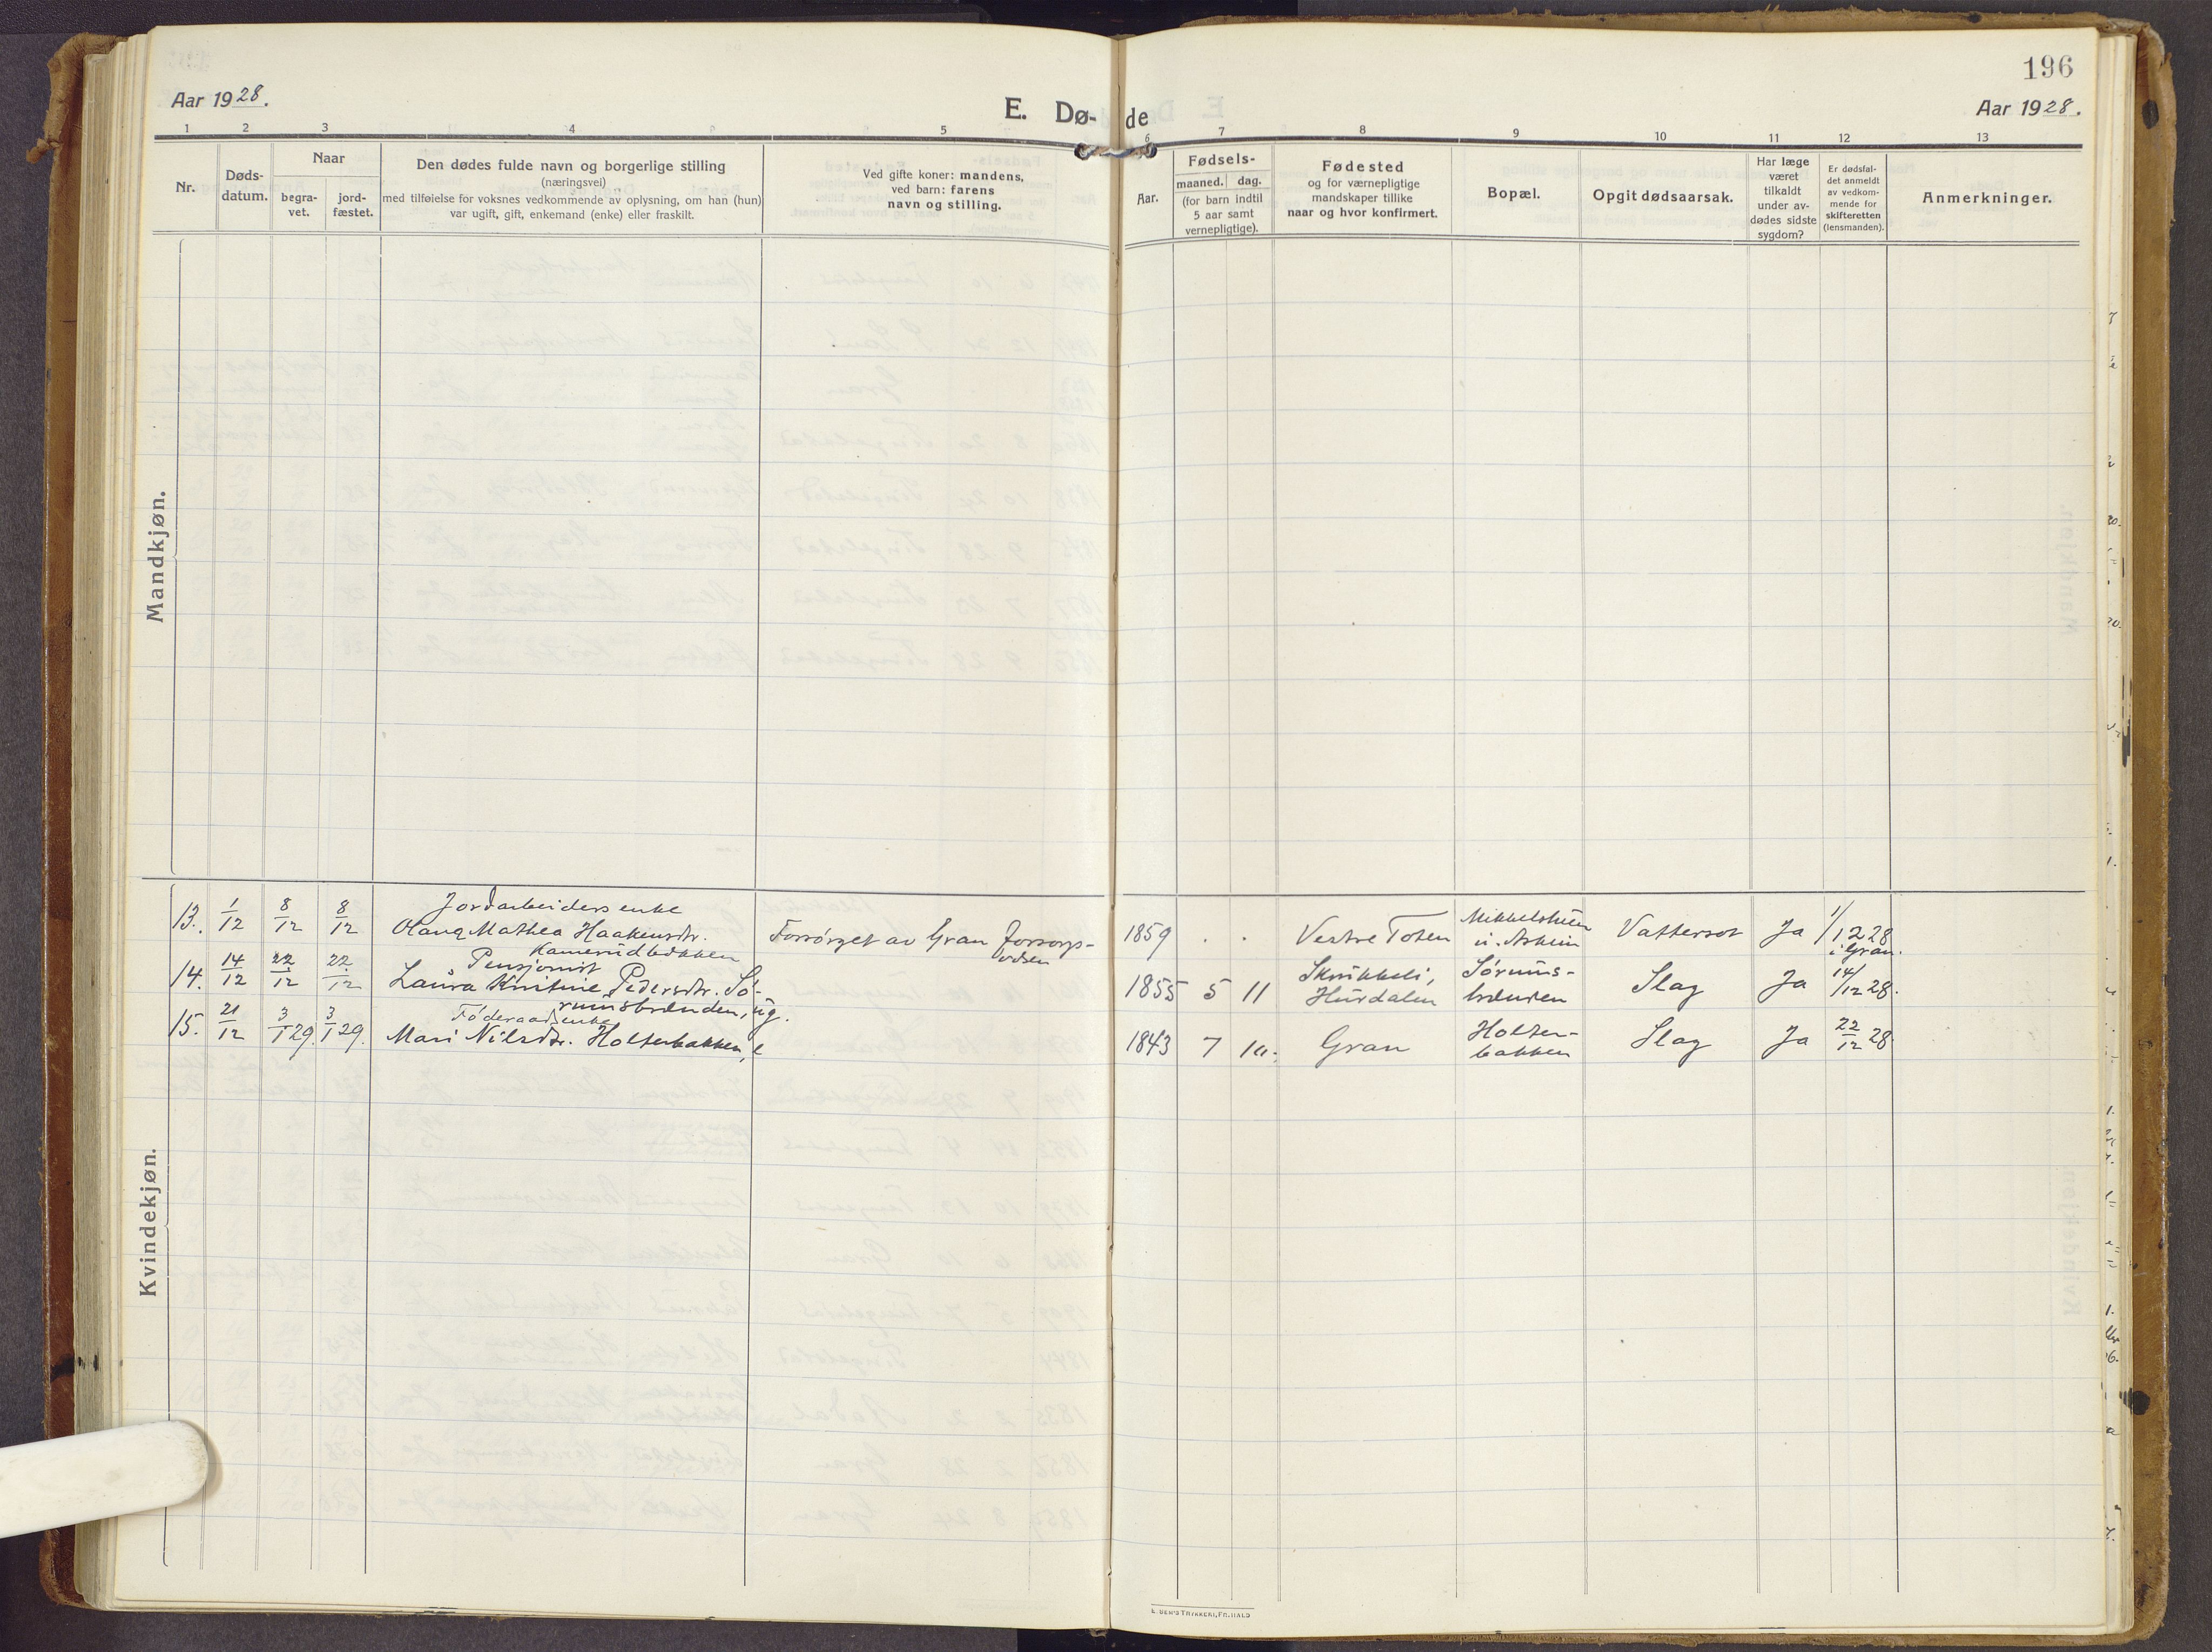 196
Aar 1928.
E. Dø-
de
Aar 1928.
1 2 3 4 5 6 7 8 9 10 11 12 13
Nr.
Døds-
datum.
Naar
begra-
vet.
jord-
fæstet.
Den dødes fulde navn og borgerlige stilling
(næringsvei)
med tilføielse for voksnes vedkommende av oplysning, om han (hun)
var ugift, gift, enkemand (enke) eller fraskilt.
Ved gifte koner: mandens,
ved barn: farens
navn og stilling.
Aar.
Fødsels-
maaned. dag.
(for barn indtil
5 aar samt
vernepligtige).
Fødested
og for værnepligtige
mandskaper tillike
naar og hvor konfirmert.
Bopæl.
Opgit dødsaarsak.
Har læge
været
tilkaldt
under av-
dødes sidste
sygdom?
Er dødsfal-
det anmeldt
av vedkom-
mende for
skifteretten
(lensmanden).
Anmerkninger.
Mandkjøn.
Kvindekjøn.
13. 1/12 8/12 8/12
Jordarbeiders enke
Olava Mathea Haakensdr.
Kamerudbakken
Forsørget av Gran forsorgs-
1859 . . Vestre Toten
Vattersot Ja 1/12 28
i Gran.
14. 14/12 22/12 22/12
Pensjonist
Laura Kristine Pedersdr. Sø-
rumsbrænden, ug.
1855 5 11 Skrukkeli,
Hurdalen
Sørums-
brenden
Slag Ja 14/12 28.
15. 21/12 3/1 29. 3/1 29.
Føderaadsenke
Mari Nilsdr. Holterbakken, e
1843 7 Gran
Holter-
bakken
Slag Ja 22/12 28